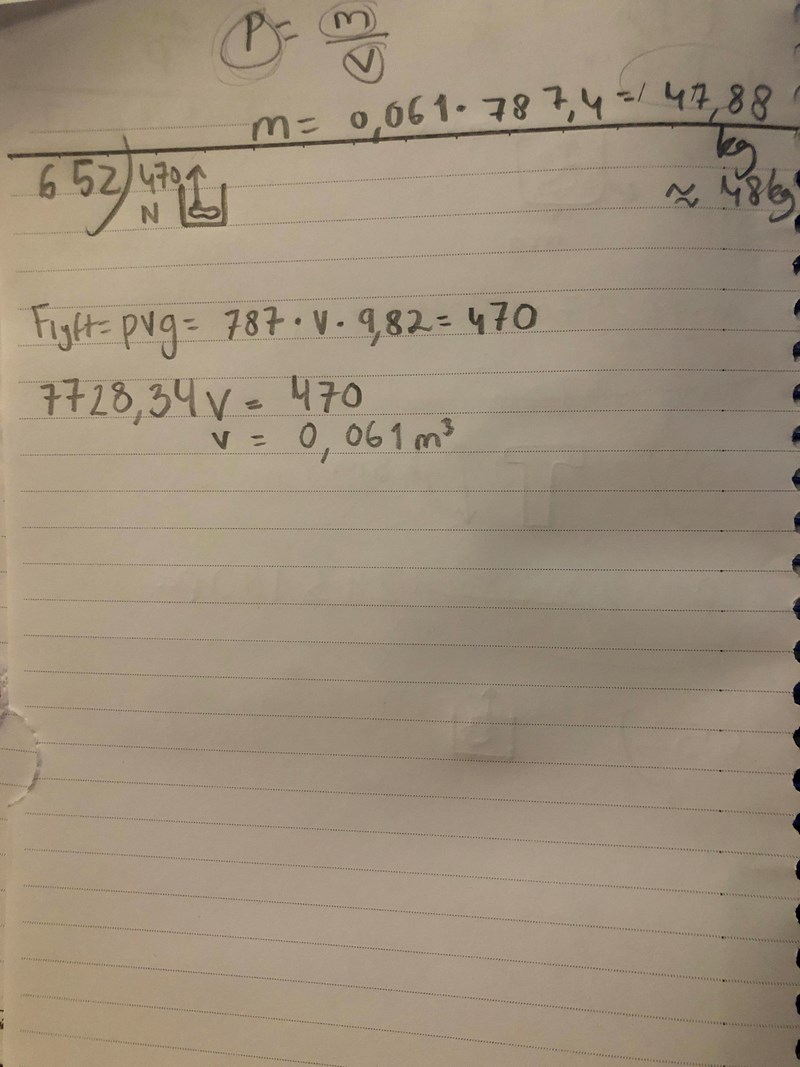 P = m/V
m = 0,061 · 787,4 = 47,88 kg
≈ 48 kg
652) 470 N
Flyft = ρVg = 787 · V · 9,82 = 470
7728,34 V = 470
V = 0,061 m³